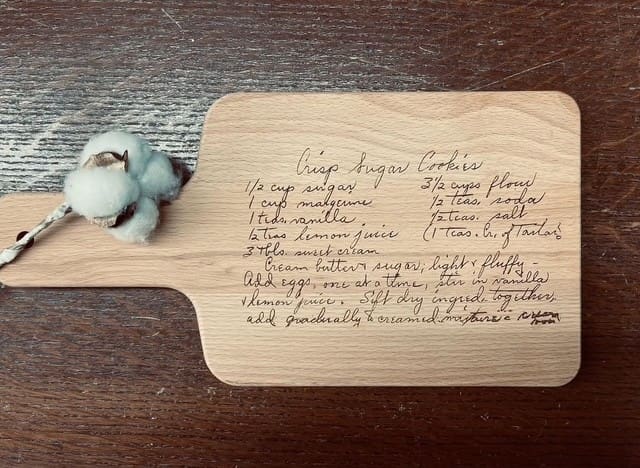 Crisp Sugar Cookies
1/2 cup sugar 3 1/2 cups flour
1 cup margerine 1/2 teas. soda
1 teas. vanilla 1/2 teas. salt
1/2 teas lemon juice (1 teas. Cr. of Tartar)
3 tbls. sweet cream
Cream butter & sugar, light & fluffy -
Add eggs, one at a time, stir in vanilla
& lemon juice. Sift dry ingred. together,
add gradually to creamed mixture -